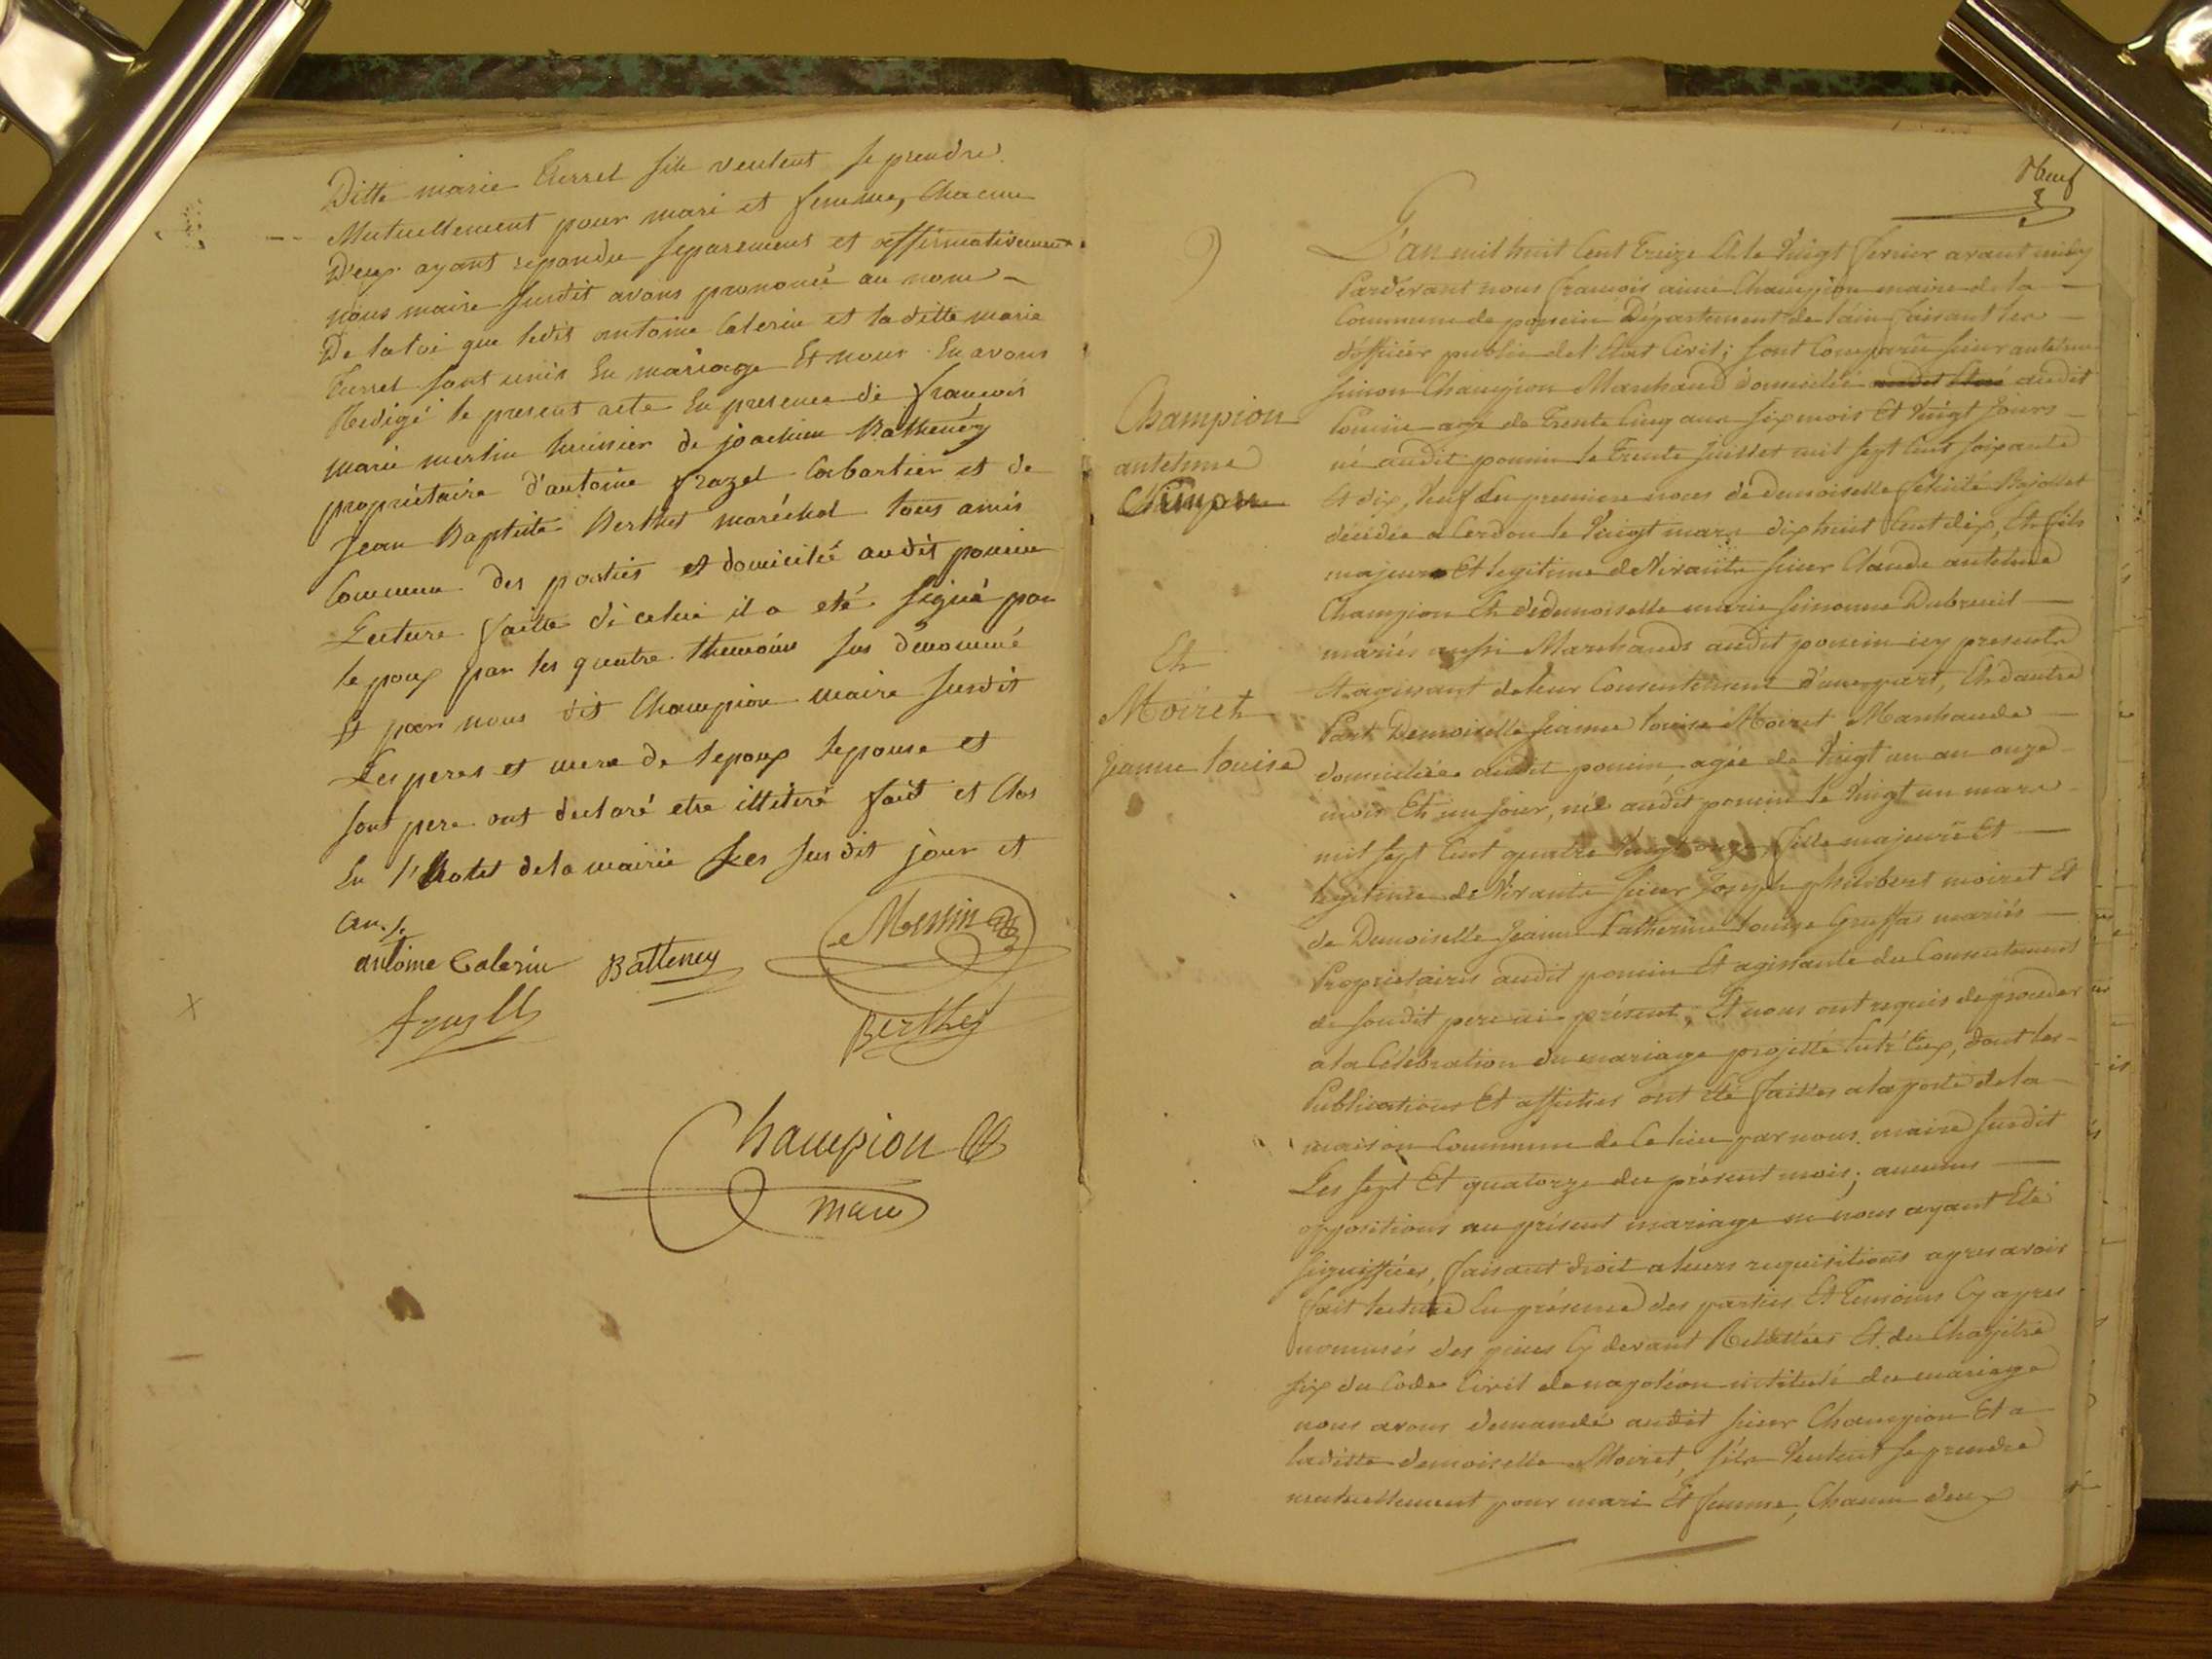 Ditte marie Turrel sils veulent se prendre
Mutuellement pour mari et femme, Chacun
D'eux ayant repondu separement et affirmativement
nous maire susdit avons prononcé au nom
De la loi que ledit antoine Calerin et la ditte marie
Turrel sont unis En mariage Et nous En avons
Redigé le present acte En presence de françois
marie merlin huissier de joachim Batheney
propriétaire d'antoine frazel Cabartier et de
Jean Baptiste Berthet maréchal tous amis
Commun des parties et domicilié audit poncin
Lecture faitte di celui il a eté signé par
lepoux par les quatre themoins sus dénommé
Et par nous dit Champion maire susdit
Les peres et mere de lepoux lepouse et
sont pere ont declaré etre illitéré fait et Clos
En l'hotel de la mairie Les susdit jour et
an./.
antoine Calerin Batteney Merlin
frazel Berthet
Champion
maire
Neuf
9
L'an mil huit Cent Treize Et le Vingt fevrier avant midy
Pardevant nous françois aimé Champion maire de la
Commune de poncin Département de l'ain faisant les
d'officier public de l'Etat Civil; sont Comparû sieur antelme
simon Champion Marchand domicilié audit
Poncin age de Trente Cinq ans six mois Et Vingt Jours
né audit poncin le Trente Juillet mil sept Cent soixante
Et dix, Veuf En premiere noces de demoiselle felicité Bajollet
décédée a Cerdon le Vingt mars dix huit Cent dix, Et fils
majeur Et legitime de Vivants sieur Claude antelme
Champion Et de demoiselle marie simonne Dubreuil
mariés aussi Marchands audit poncin icy presents
Et agissant de leur Consentement d'une part, Et d'autre
Part Demoiselle Jeanne louise Moiret Marchande
domiciliée audit poncin, agée de Vingt un an onze
mois Et un jour, née audit poncin le Vingt un mars
mil sept Cent quatre Vingt onze, fille majeure Et
legitime de Vivants sieur Joseph philibert moiret Et
de Demoiselle Jeanne Catherine louise Gruffas mariés
Proprietaires audit poncin Et agissante du Consentement
de soudit pere ici présent; Et nous ont requis de proceder
a la Célébration du mariage projetté Entr'Eux, dont les
Publications Et affiches ont Eté faittes a la porte de la
maison Commune de Ce lieu par nous maire susdit
Les sept Et quatorze du présent mois; aucunes
oppositions au présent mariage ne nous ayant Eté
signiffiées, faisant droit a leurs requisitions apres avoir
fait lecture En présence des parties Et Temoins Cy apres
nommés des pieces Cy devant Relattées Et du Chapitre
six du Code Civil de napoléon intitulé du mariage
nous avons demandé audit sieur Champion Et a
laditte demoiselle Moiret, sils Veulent se prendre
mutuellement pour mari Et femme, Chacun deux
Champion
antelme
Simon
Et
Moiret
Jeanne louise